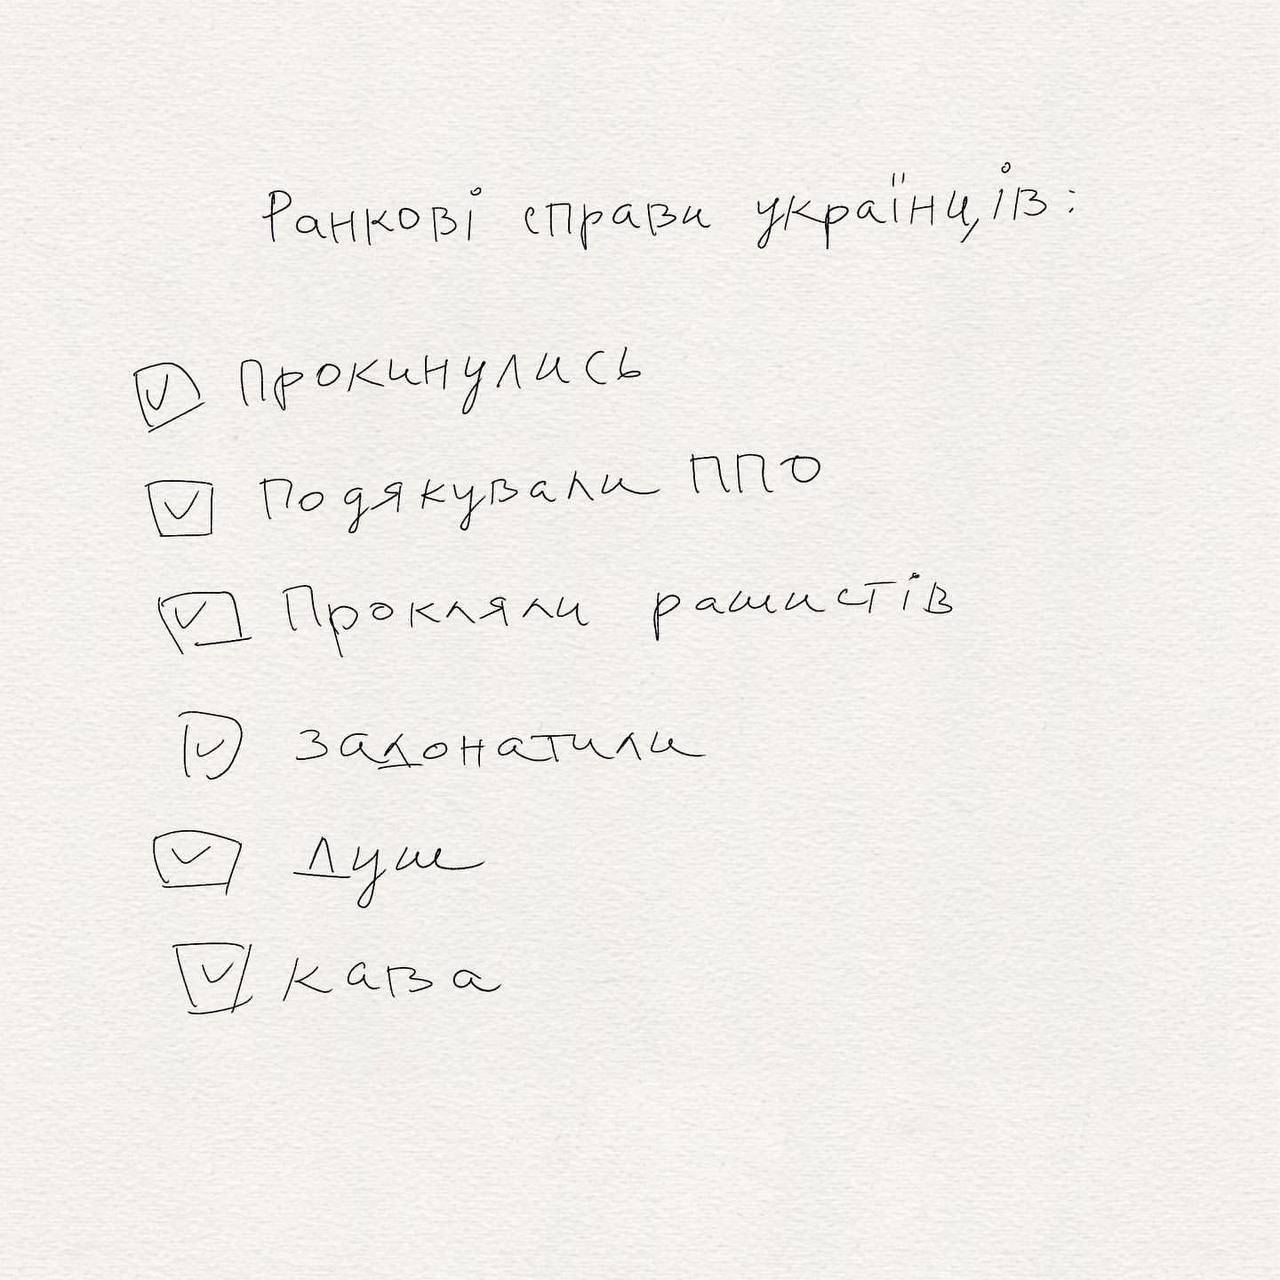 Ранкові справи українців:
Прокинулись
Подякували ППО
Прокляли рашистів
Задонатили
Душ
Кава